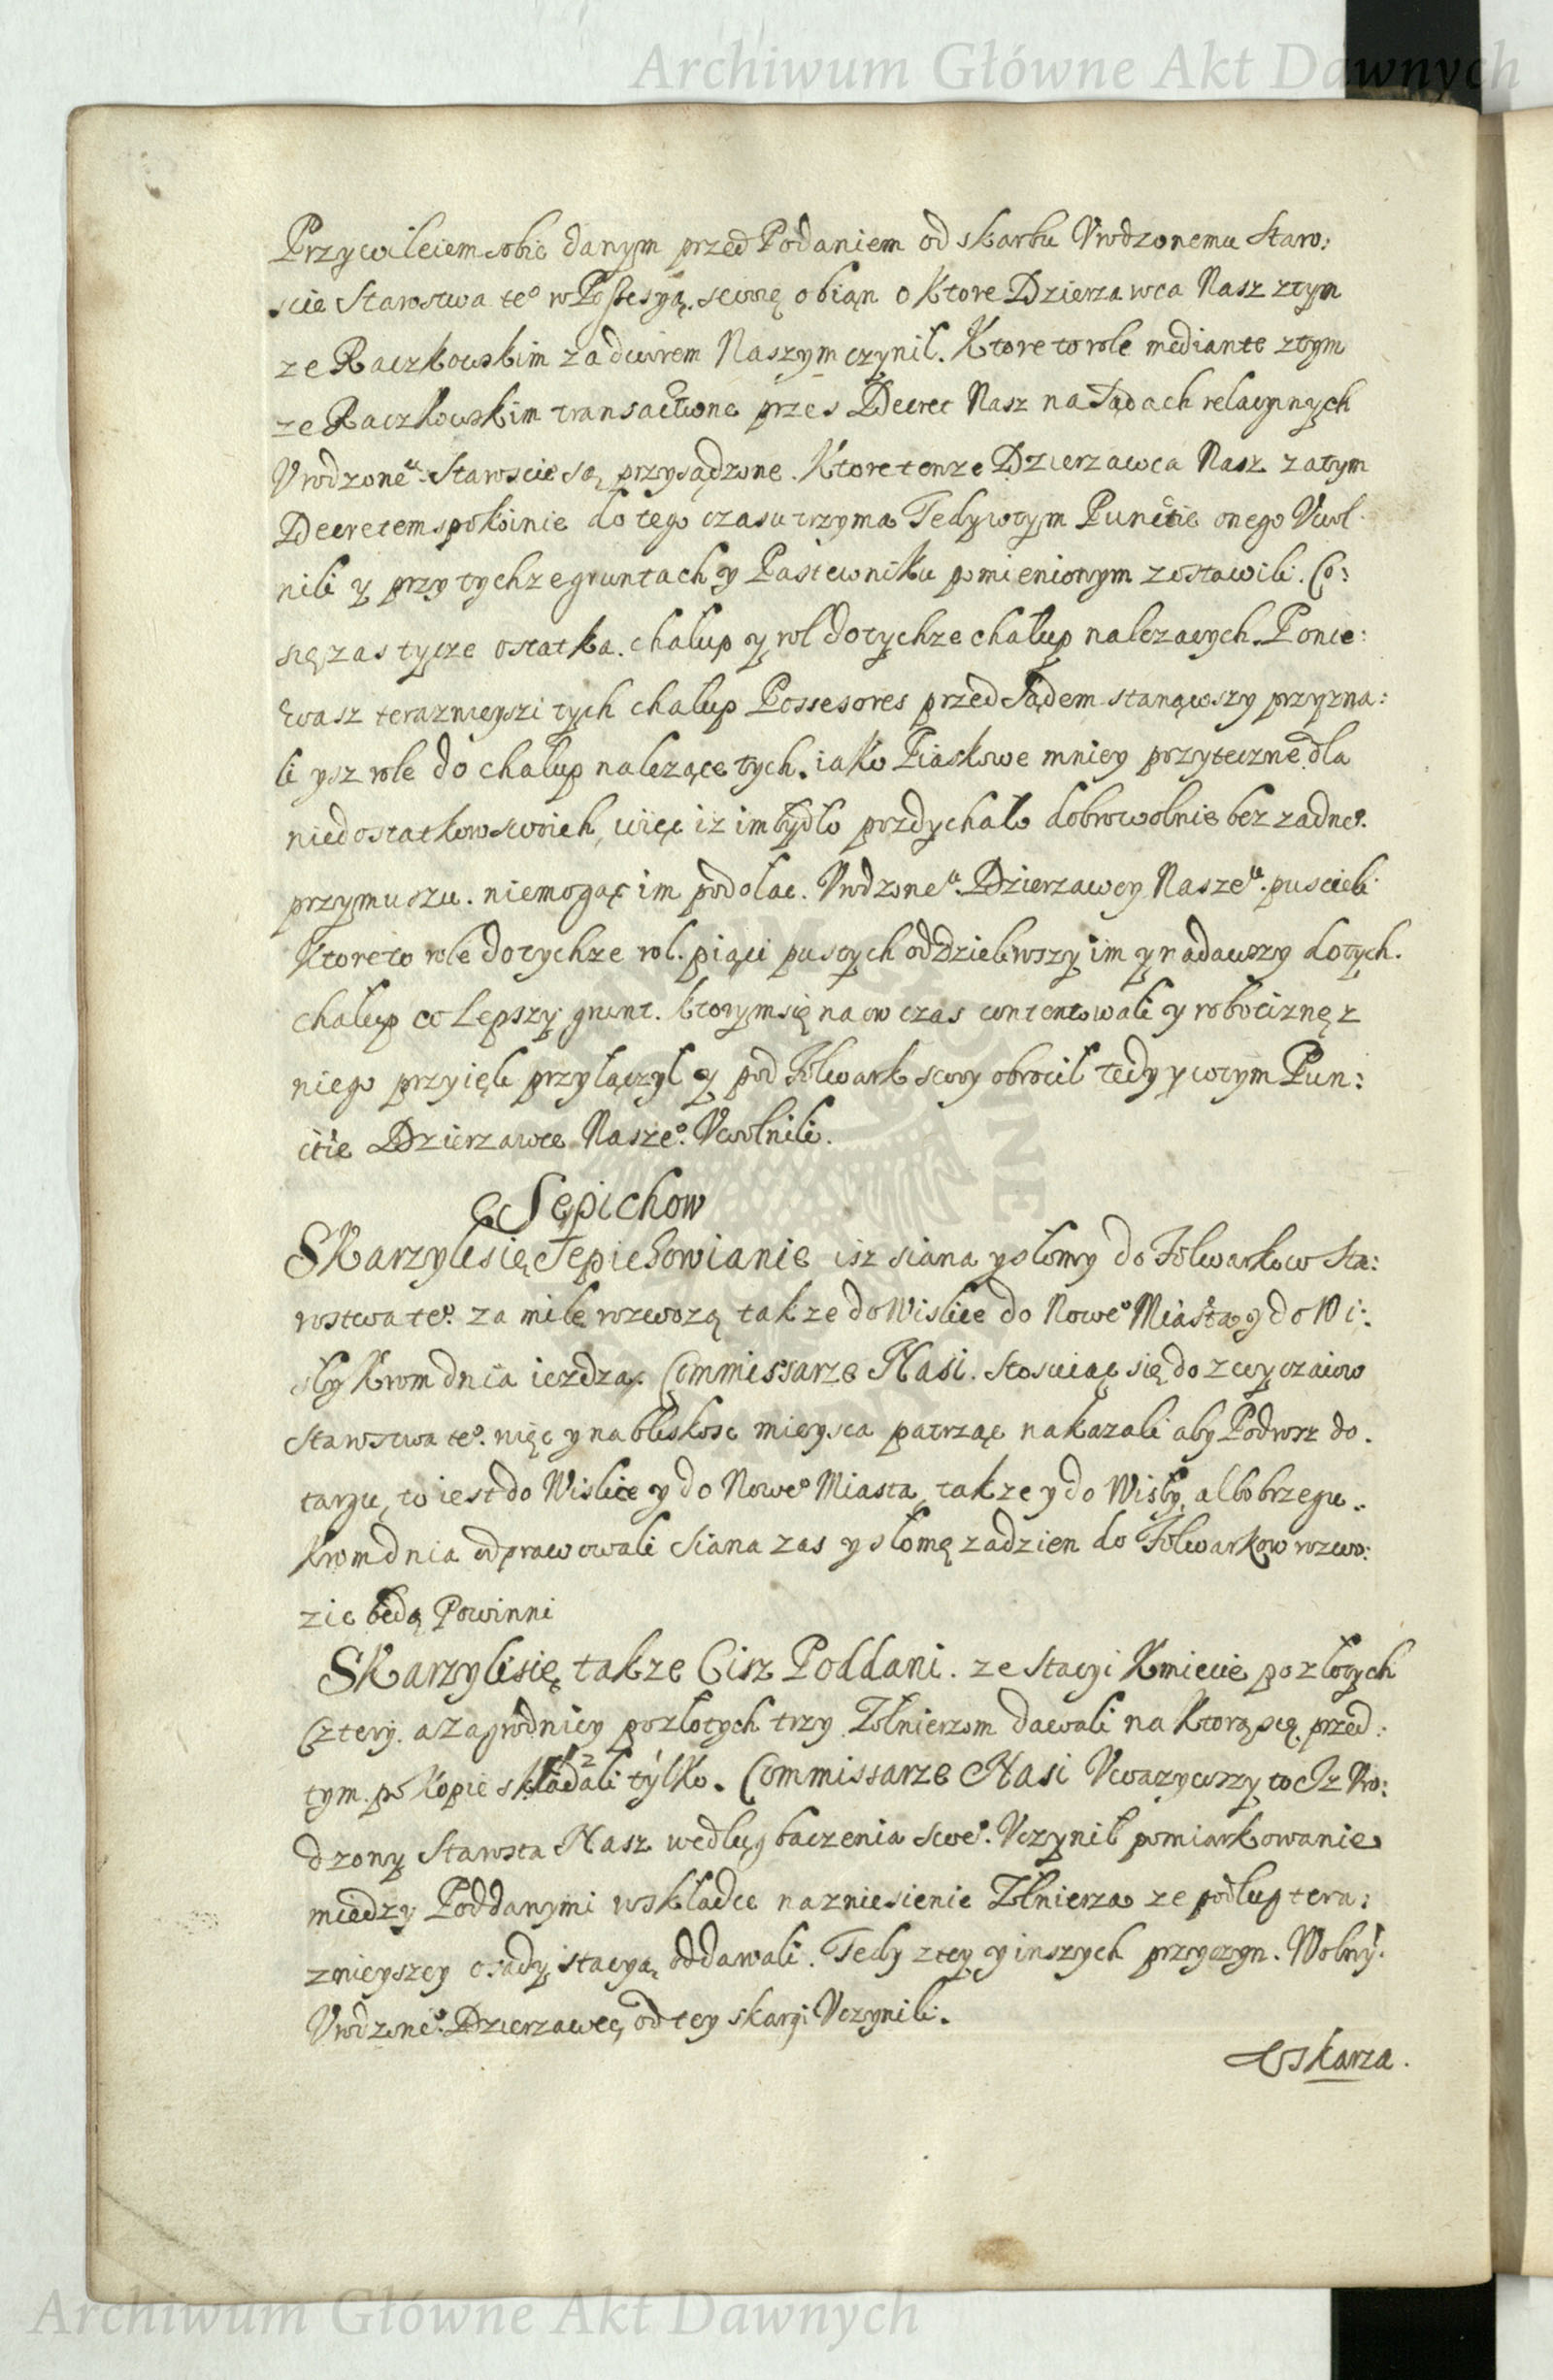 Archiwum Główne Akt Dawnych
Przywileiem sobie danym przed Podaniem od skarbu Vrodzonemu Staro:
scie Starostwa te° w Possesyą. swoię obiąn o Ktore Dzierzawca Nasz ztym
ze Raczkowskim za dwòrem Naszym czynił. Ktore to role mediante ztym
ze Raczkowskim transactione przes Decret Nasz na Sądach relacyinych
Vrodzone͏ͧ Staroscie są przysądzone. Ktore tenze Dzierzawca Nasz zatym
Decretem spokoinie do tego czasu trzyma Tedy wtym Puncttie onego Vwol
nili y przy tychze gruntach y Pastewniku pomienionym zostawili. Co:
się zas tycze ostatka. chalup y rol dotychze chałup nalezacych. Ponie:
wasz teraznieyszi tych chalup Possesores przed Sądem stanąwszy przyzna:
li ysz role do chalup nalezące tych. iako Piaskowe mniey pozyteczne dla
niedostatkow swoich, więc iż im bydło pozdychało dobrowolnie bez zadne°.
przymuszu. niemogąc im podolac. Vrodzoneͧ. Dzierzawcy Naszeͧ. puscieli
Ktore to role dotychze rol. piąci pustych oddzieliwszy im y nadawszy dotych.
chalup co Lepszy grunt. ktorym się na ow czas contentowali y robociznę z
niego przyięli przyłączył y pod Folwark swoy obrocił tedy y wtym Pun:
ctie Dzierzawce Nasze°. Vwolnili.
Sępichow
Skarzyli się Sępichowianie isz siana y słomy do Folwarkow Sta:
rostwa te°. za mile rozwozą takze do Wislice do Nowe° Miasta y do Wi:
sly Krom dnia iezdzą. Commissarze Nasi. stosuiąc się do zwyczaiow
Starostwa te°. więc y na bliskosc mieysca patrząc nakazali aby Podwoz do.
targu, to iest do Wislice y do Nowe° Miasta, takze y do Wisły, albo brzegu.
Krom dnia odprawowali Siana zas y słomę za dzien do Folwarkow rozwo:
zic będą Powinni
Skarzyli się takze Cisz Poddani. ze Stacyi Kmiecie po złotych
Cztery. a Zagrodnicy po złotych trzy Zołnierzom dawali na ktorą się przed:
tym. po kopie składali tylko. Commissarze Nasi Vwazywszy to Iz Vro:
dzony Starosta Nasz według baczenia swe°. Vczynił pomiarkowanie
miedzy Poddanymi w składce na zniesienie Zołnierza ze podług tera:
znieyszey osady stacyą oddawali. Tedy z tey y inszych przyczyn. Wolny.
Vrodzone°. Dzierzawcę od tey skargi Vczynili.
Vskarza.
Archiwum Główne Akt Dawnych